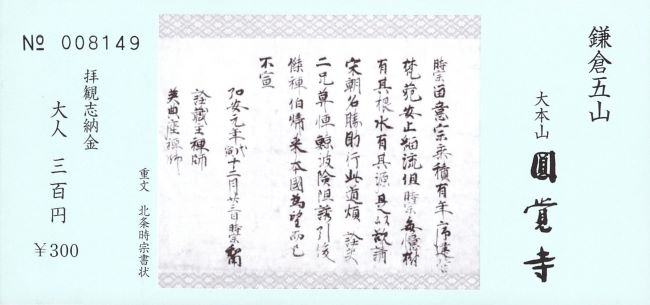 鎌倉五山
大本山 圓覚寺
時宗留意宗乗積有年序建営
梵苑安止緇流但時宗毎憶樹
有其根水有其源是以欲請
宋朝名勝助行此道煩詮英
二兄莫憚鯨波険阻誘引俊
傑禅伯帰来本國為望而已
不宣
弘安元年戊寅十二月廿三日時宗和南
詮蔵主禅師
英典座禅師
重文 北条時宗書状
№ 008149
拝観志納金
大人 三百円
￥300